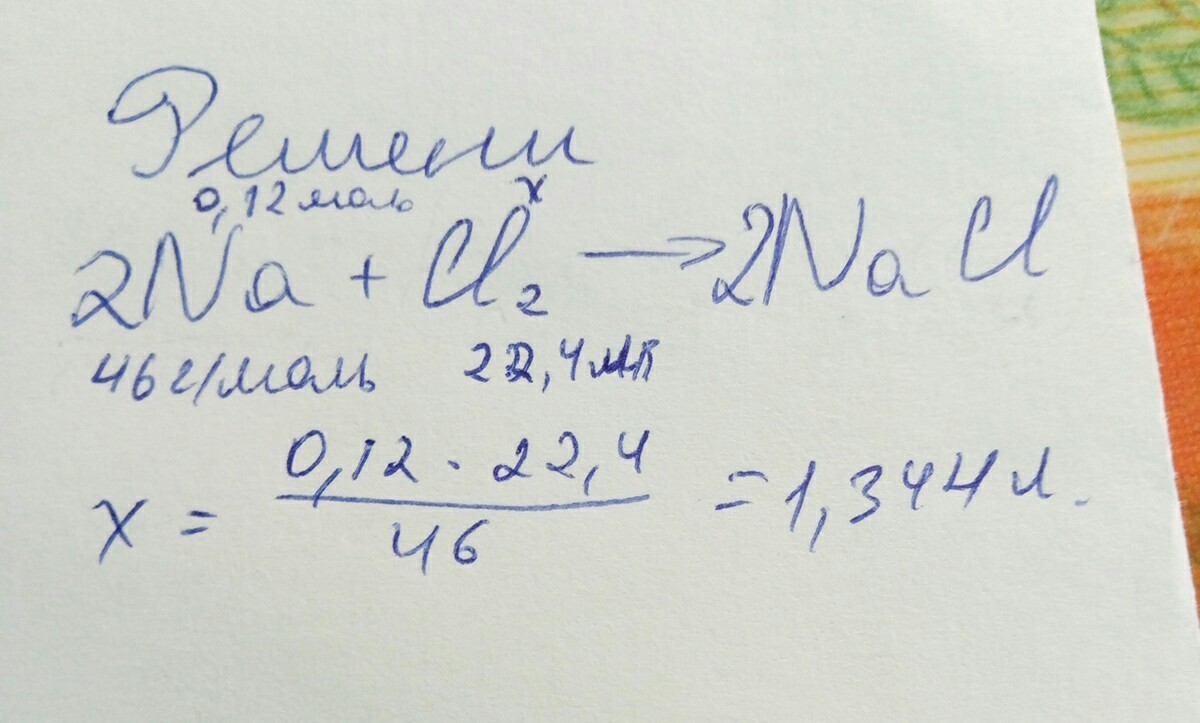 Решени
0,12 моль x
2Na + Cl₂ → 2NaCl
46 г/моль 22,4
x = 0,12 · 22,4 / 46 = 1,344 л.